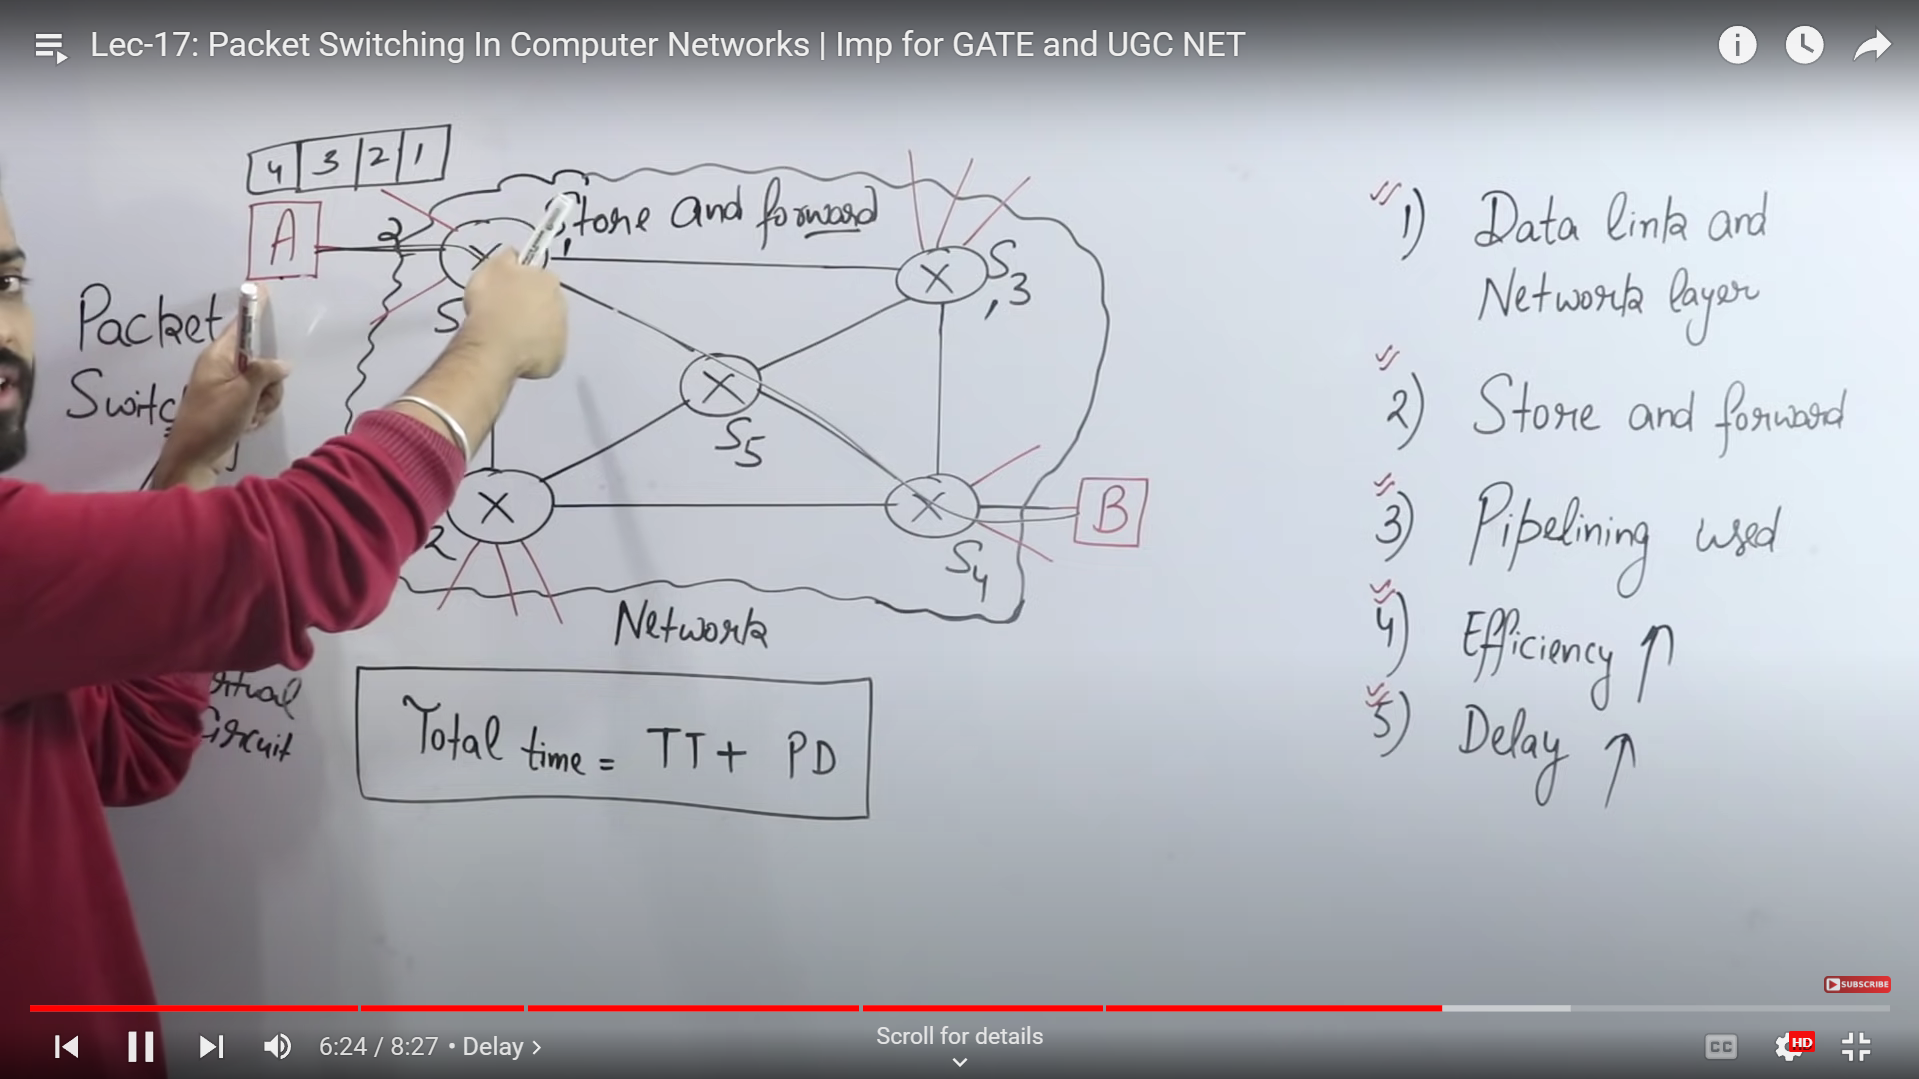 Lec-17: Packet Switching In Computer Networks | Imp for GATE and UGC NET
4 3 2 1
A
2
Store and forward
S3
S5
B
2
S4
Packet
Network
Circuit
Total time = TT + PD
1) Data link and
Network layer
2) Store and forward
3) Pipelining used
4) Efficiency ↑
5) Delay ↑
SUBSCRIBE
6:24 / 8:27 • Delay >
Scroll for details
CC
HD